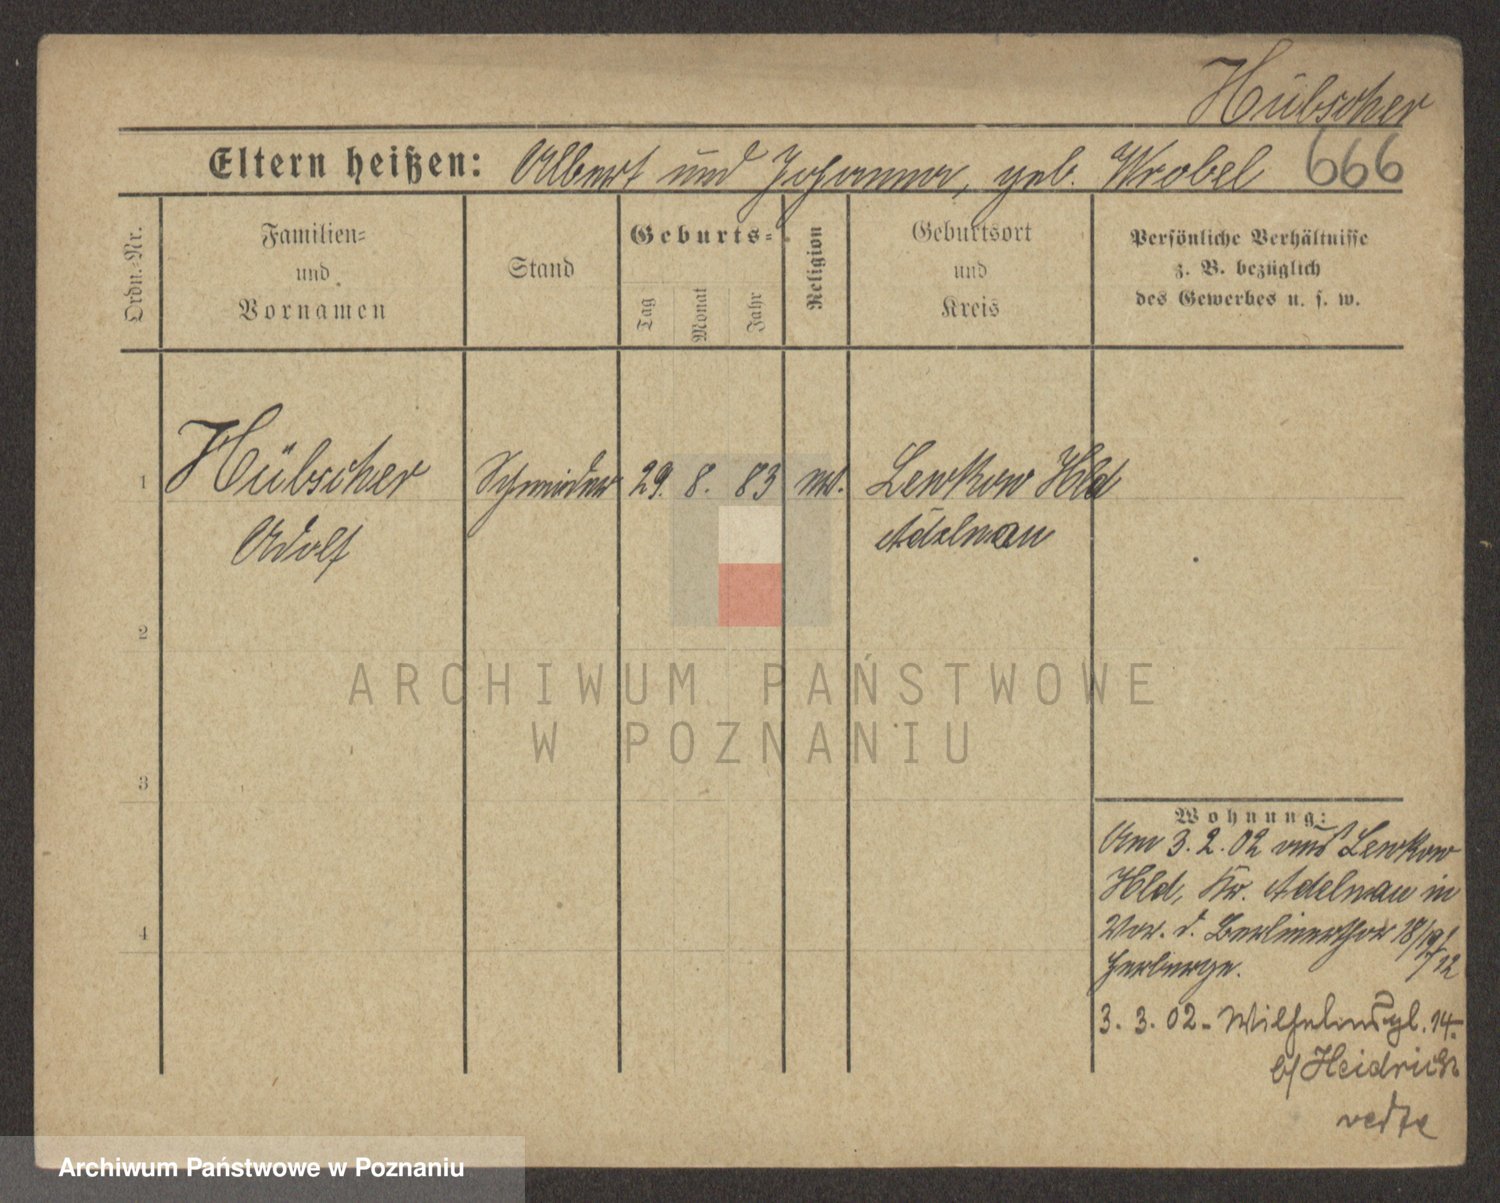 Hübscher
Eltern heißen: Albert und Johanna, geb. Wrobel 666
Ordn.-Nr.
Familien-
und
Vornamen
Stand
Geburts-
Tag
Monat
Jahr
Religion
Geburtsort
und
Kreis
Persönliche Verhältnisse
z. B. bezüglich
des Gewerbes u. s. w.
1 Hübscher Schneider 29. 8. 83 ev. Lewkow Hld
Adolf Adelnau
2
3
4
ARCHIWUM PAŃSTWOWE
W POZNANIU
Wohnung:
Am 3. 2. 02 aus Lewkow
Hld, Kr. Adelnau in
Vor. d. Berlinerthor 18/19/
/12
Herberge.
3. 3. 02 - Wilhelmspl. 14.
b/ Heidrich
Archiwum Państwowe w Poznaniu